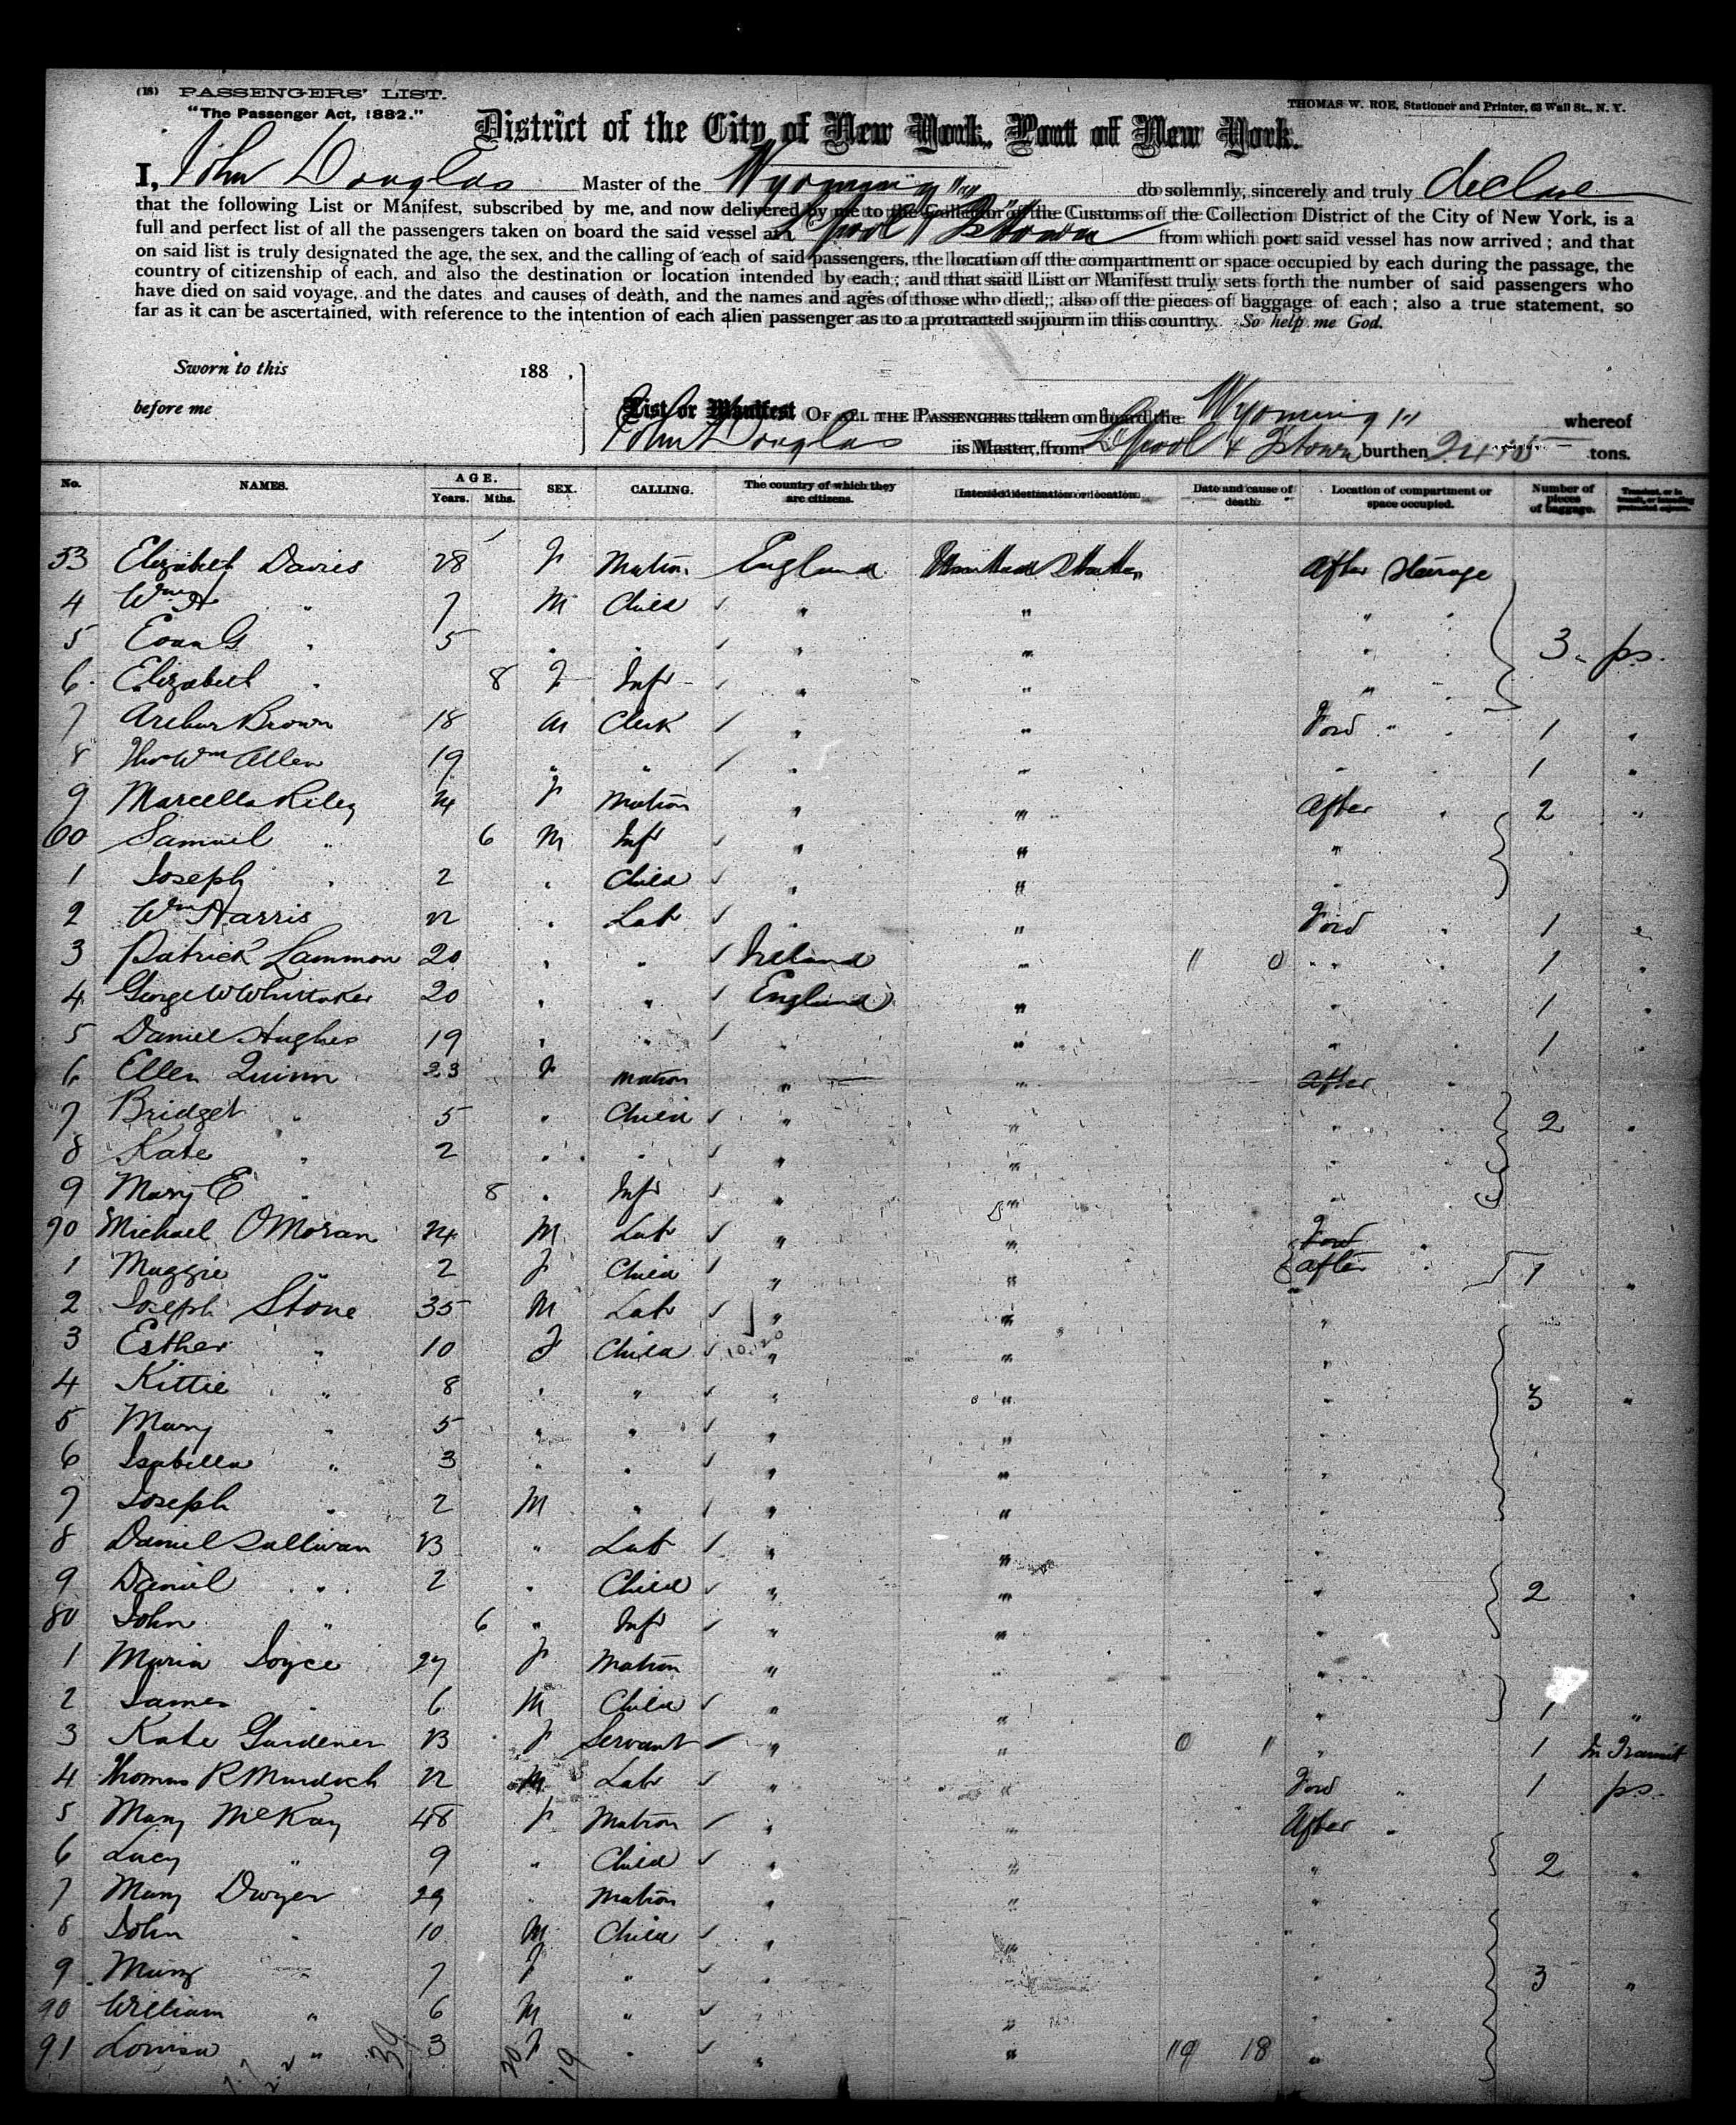 (18) PASSENGERS' LIST.
THOMAS W. ROE, Stationer and Printer, 63 Wall St., N. Y.
"The Passenger Act, 1882."
District of the City of New York, Port of New York.
I, John Douglas Master of the "Wyoming" do solemnly, sincerely and truly declare
that the following List or Manifest, subscribed by me, and now delivered by me to the Collector of the Customs of the Collection District of the City of New York, is a
full and perfect list of all the passengers taken on board the said vessel at L'pool & Q'stown from which port said vessel has now arrived; and that
on said list is truly designated the age, the sex, and the calling of each of said passengers, the location of the compartment or space occupied by each during the passage, the
country of citizenship of each, and also the destination or location intended by each; and that said List or Manifest truly sets forth the number of said passengers who
have died on said voyage, and the dates and causes of death, and the names and ages of those who died; also of the pieces of baggage of each; also a true statement, so
far as it can be ascertained, with reference to the intention of each alien passenger as to a protracted sojourn in this country. So help me God.
Sworn to this 188 ,
before me
List or Manifest OF ALL THE PASSENGERS taken on board the Wyoming whereof
John Douglas is Master, from L'pool & Q'stown burthen tons.
No. NAMES. AGE. Years. Mths. SEX. CALLING. The country of which they are citizens. Intended destination or location. Date and cause of death. Location of compartment or space occupied. Number of pieces of baggage. Transient, or in transit, or intending protracted sojourn.
53 Elizabeth Davies 28 F Matron England United States After Steerage
4 Wm H " 7 M Child " " " "
5 Evan G " 5 " " " " " " 3 ps.
6 Elizabeth " 8 F Inft " " " "
7 Arthur Brown 18 M Clerk " " Ford " " 1 "
8 Thos Wm Allen 19 " " " " " 1 "
9 Marcella Riley 24 F Matron " " After " 2 "
60 Samuel " 6 M Inft " " "
1 Joseph " 2 " Child " " "
2 Wm Harris 22 " Lab " " Ford " 1 "
3 Patrick Lammon 20 " " Ireland " " " 1 "
4 George W Whittaker 20 " " England " " " 1 "
5 Daniel Hughes 19 " " " " " " 1 "
6 Ellen Quinn 23 F Matron " " After "
7 Bridget " 5 " Child " " " " 2 "
8 Kate " 2 " " " " " "
9 Mary E " 8 " Inft " " "
70 Michael O Moran 24 M Lab " " Ford "
1 Maggie " 2 F Child " " After " 1 "
2 Joseph Stone 35 M Lab " " "
3 Esther " 10 F Child " " "
4 Kittie " 8 " " " " " 3 "
5 Mary " 5 " " " " "
6 Isabella " 3 " " " " "
7 Joseph " 2 M " " " "
8 Daniel Sullivan 23 " Lab " " "
9 Daniel " 2 " Child " " " 2 "
80 John " 6 " Inft " " "
1 Maria Joyce 27 F Matron " " "
2 James " 6 M Child " " " 1 "
3 Kate Gardener 23 F Servant " " " 1 In Transit
4 Thomas R Murdoch 22 M Lab " " Ford " 1 ps.
5 Mary McKay 48 F Matron " " After "
6 Lucy " 9 " Child " " " 2 "
7 Mary Dwyer 29 " Matron " " "
8 John " 10 M Child " " "
9 Mary " 7 F " " " " 3 "
90 William " 6 M " " " "
91 Louisa " 3 F " " " 19 18 "
39 20 19